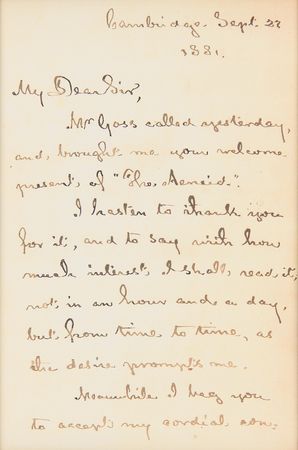 Cambridge Sept. 27
1881.
My Dear Sir,
Mr Goss called yesterday,
and brought me your welcome
present of "The Aeneid".
I hasten to thank you
for it, and to say with how
much interest I shall read it,
not in an hour and a day,
but from time to time, as
the desire prompts me.
Meanwhile I beg you
to accept my cordial con-